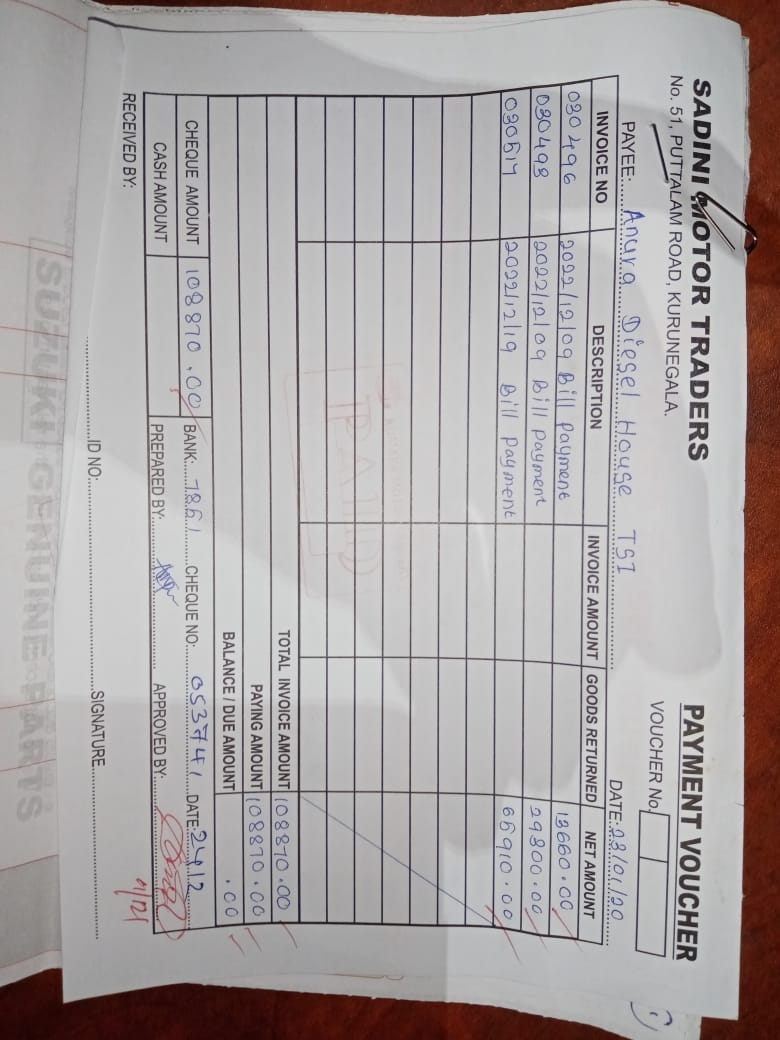 SADINI MOTOR TRADERS
No. 51, PUTTALAM ROAD, KURUNEGALA.
PAYMENT VOUCHER
VOUCHER No.
PAYEE: Anura Diesel House TSI DATE: 23/01/20
INVOICE NO DESCRIPTION INVOICE AMOUNT GOODS RETURNED NET AMOUNT
030496 2022/12/09 Bill payment 13660.00
030498 2022/12/09 Bill payment 29300.00
030517 2022/12/19 Bill payment 65910.00
PAID
TOTAL INVOICE AMOUNT 108870.00
PAYING AMOUNT 108870.00
BALANCE / DUE AMOUNT .00
CHEQUE AMOUNT 108870.00 BANK: 7861 CHEQUE NO: 053741 DATE: 2412
CASH AMOUNT PREPARED BY: APPROVED BY:
RECEIVED BY: ID NO: SIGNATURE
SUZUKI GENUINE PARTS